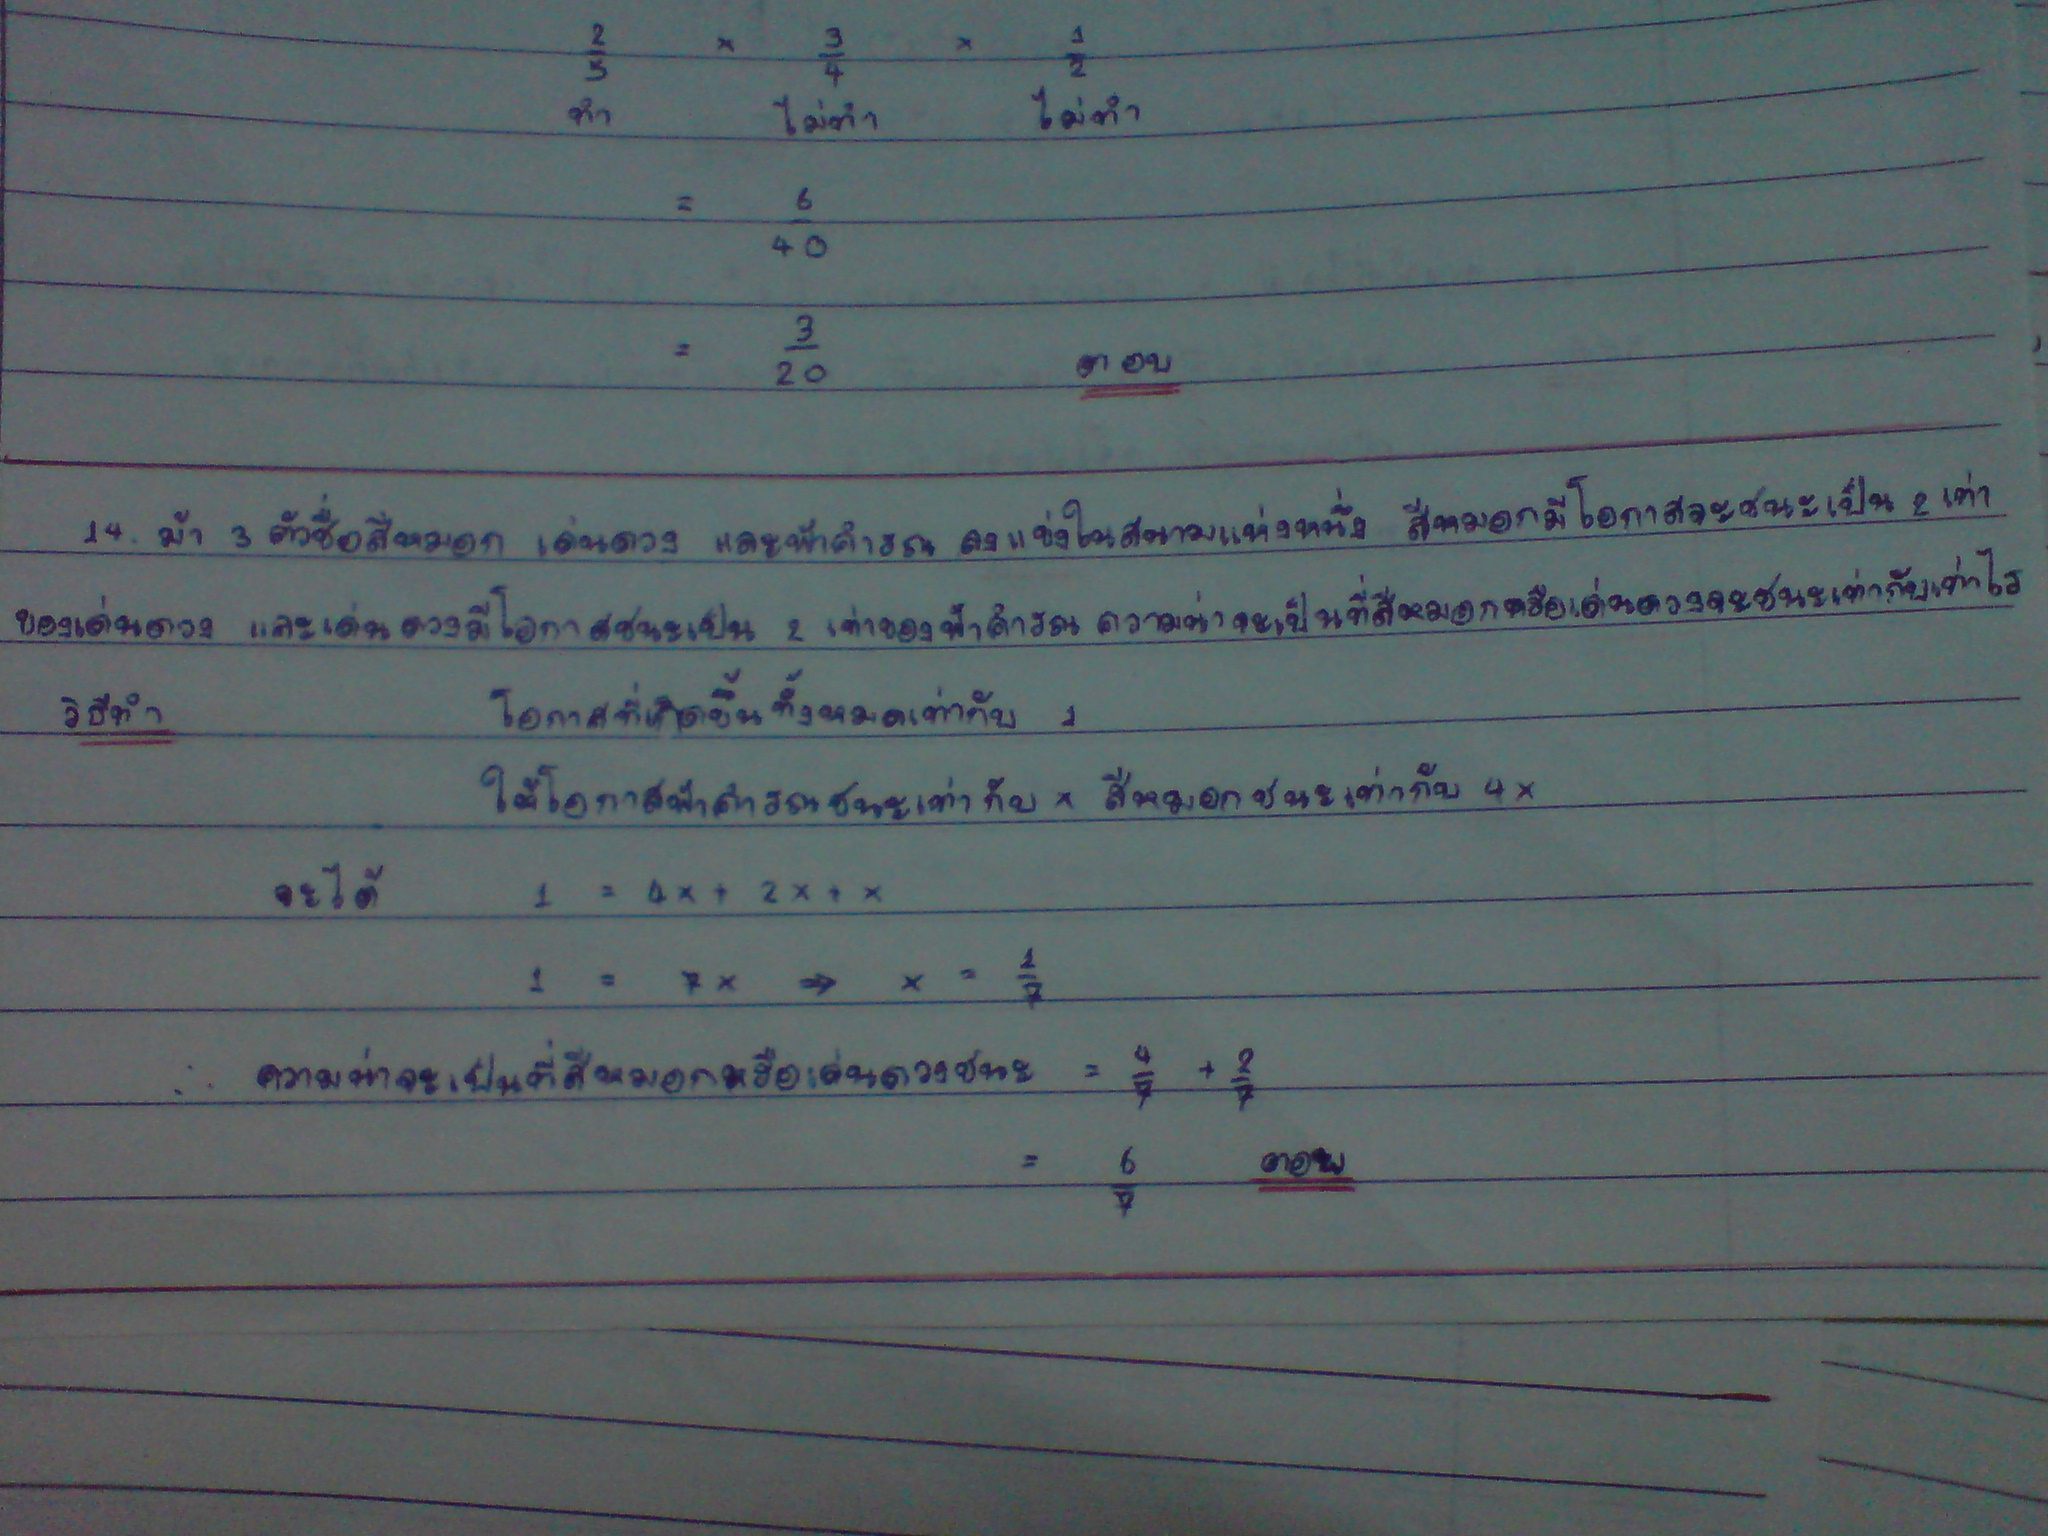 2/5 × 3/4 × 1/2
ทำ ไม่ทำ ไม่ทำ
= 6/40
= 3/20 ตอบ
14. ม้า 3 ตัวชื่อสีหมอก เด่นดวง และฟ้าคำรณ ลงแข่งในสนามแห่งหนึ่ง สีหมอกมีโอกาสจะชนะเป็น 2 เท่า
ของเด่นดวง และเด่นดวงมีโอกาสชนะเป็น 2 เท่าของฟ้าคำรณ ความน่าจะเป็นที่สีหมอกหรือเด่นดวงจะชนะเท่ากับเท่าไร
วิธีทำ โอกาสที่เกิดขึ้นทั้งหมดเท่ากับ 1
ให้โอกาสฟ้าคำรณชนะเท่ากับ x สีหมอกชนะเท่ากับ 4x
จะได้ 1 = 4x + 2x + x
1 = 7x ⇒ x = 1/7
∴ ความน่าจะเป็นที่สีหมอกหรือเด่นดวงชนะ = 4/7 + 2/7
= 6/7 ตอบ